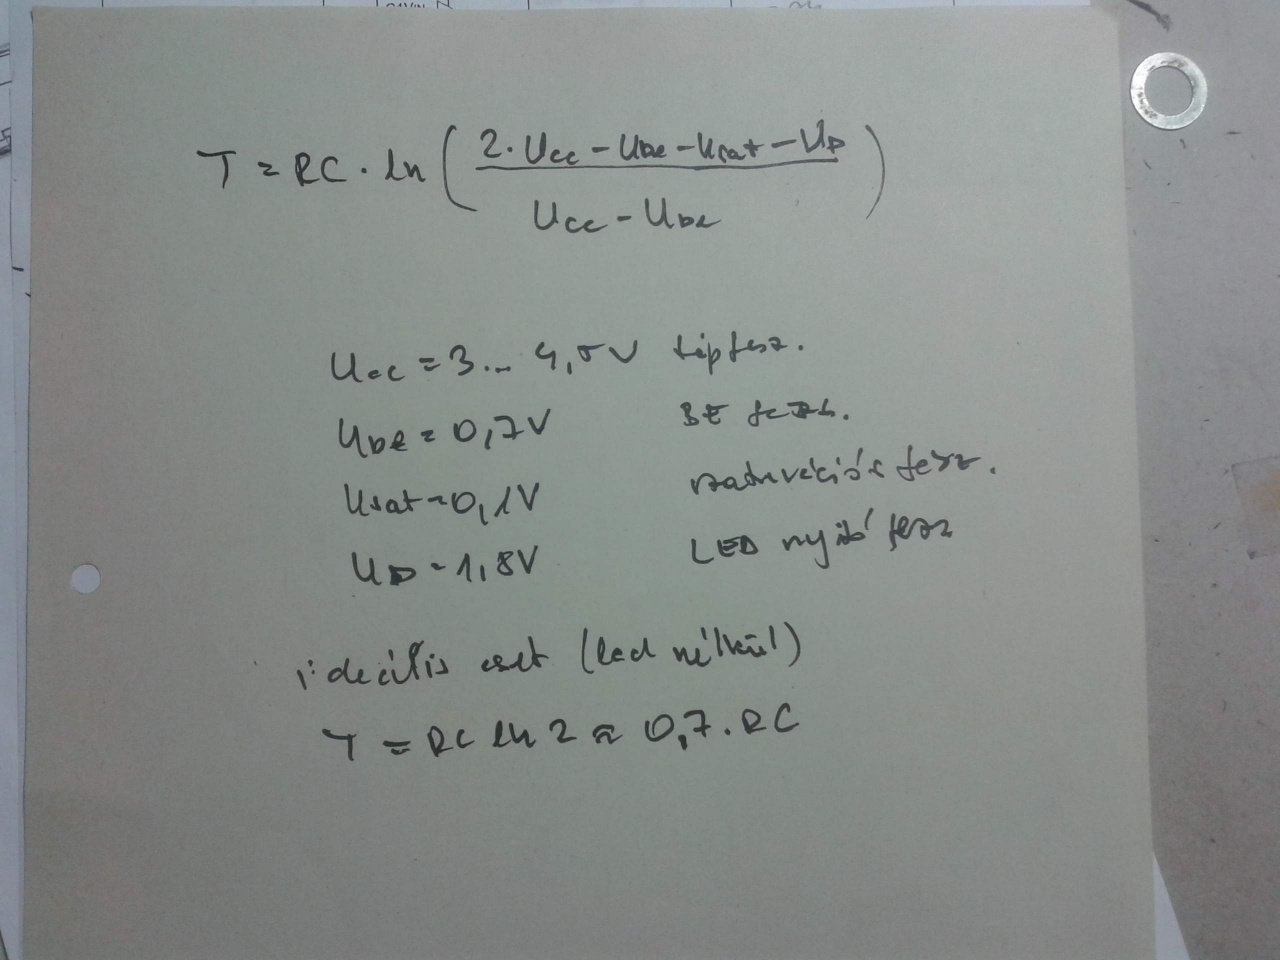 T = RC · ln ( (2·Ucc – Ube – Usat – UD) / (Ucc – Ube) )
Ucc = 3... 4,5V tápfesz.
Ube = 0,7V BE fesz.
Usat = 0,1V szaturációs fesz.
UD = 1,8V LED nyitó fesz
ideális eset (led nélkül)
T = RC ln 2 ≈ 0,7·RC